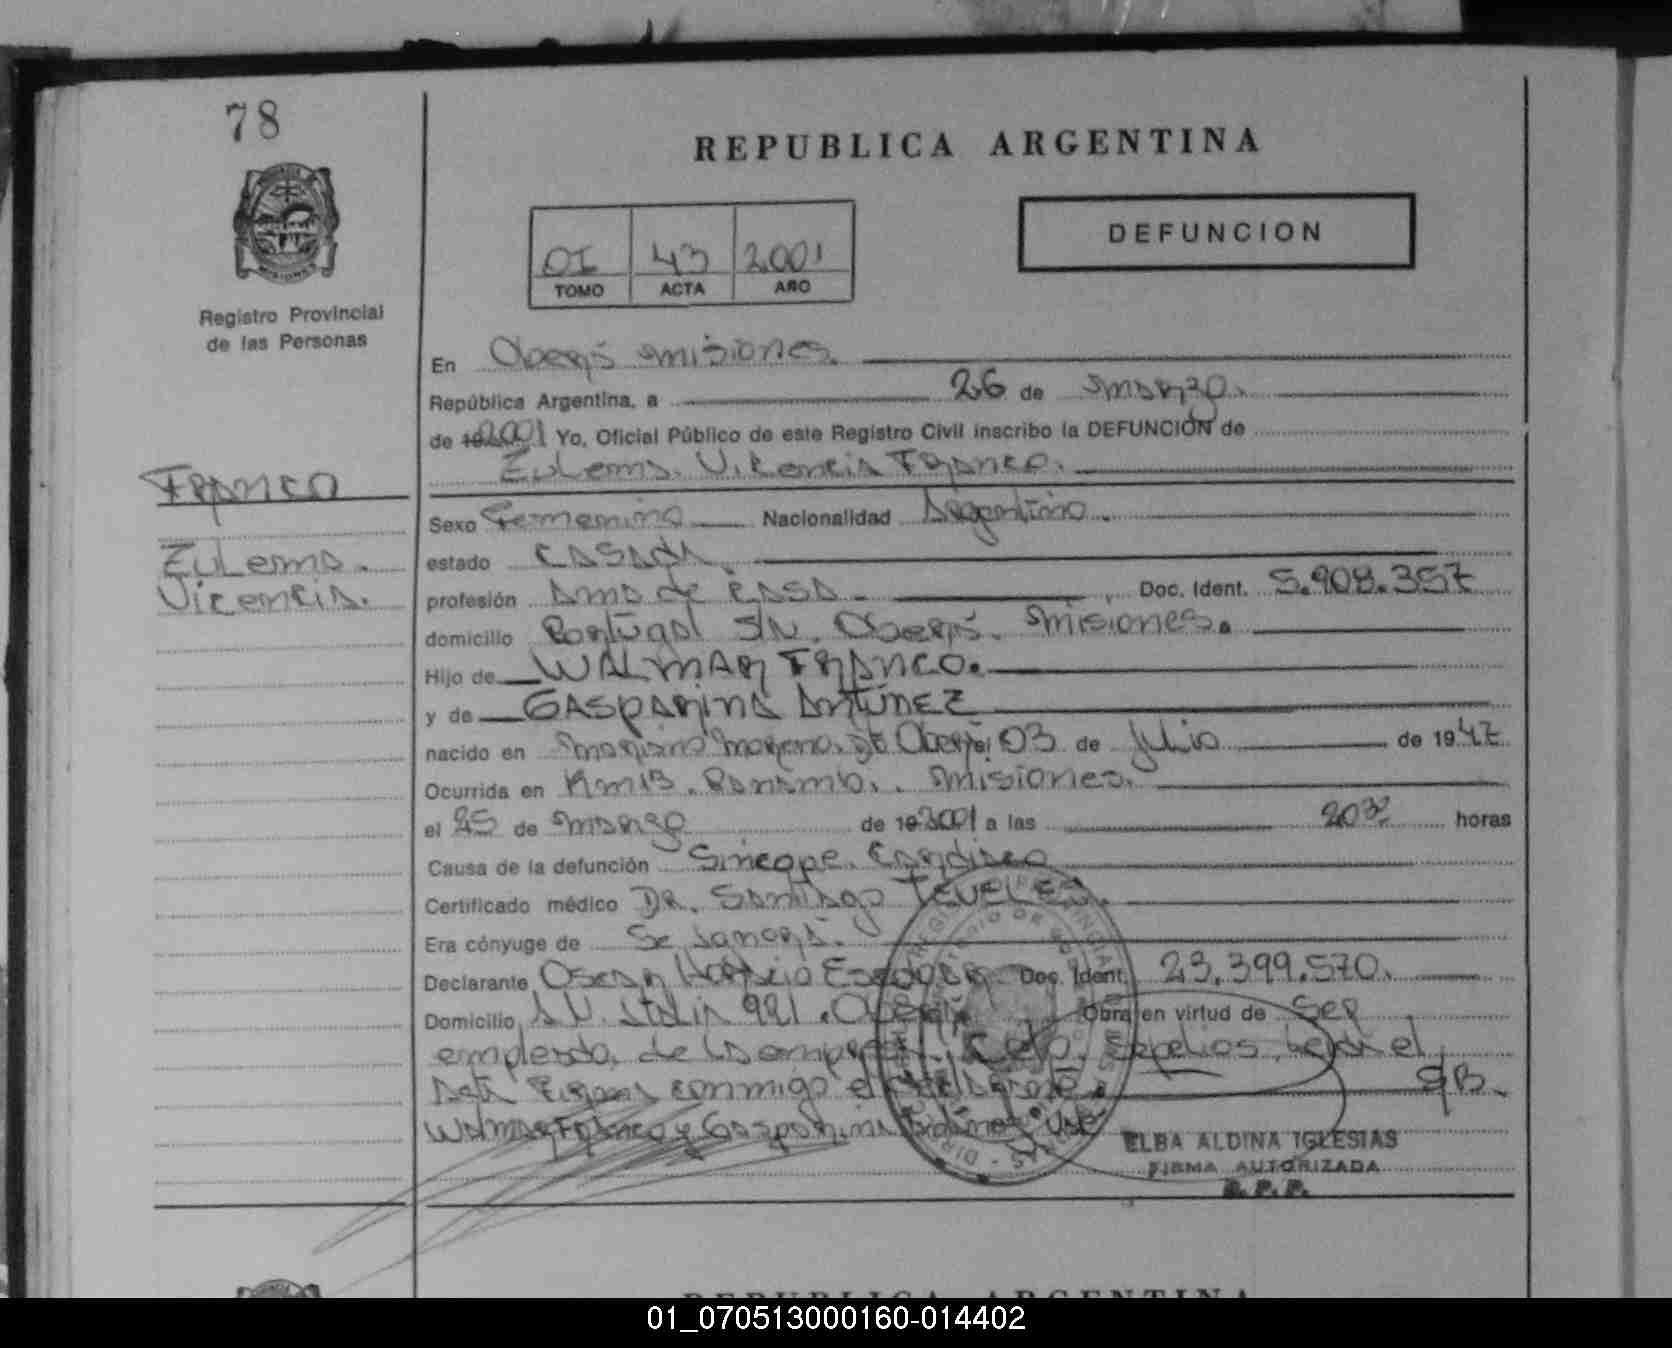 78
REPUBLICA ARGENTINA
DEFUNCION
01 43 2001
TOMO ACTA AÑO
Registro Provincial
de las Personas
En Oberá Misiones.
República Argentina, a 26 de Marzo.
de 19 2001 Yo, Oficial Público de este Registro Civil inscribo la DEFUNCIÓN de
Zulema. Vicencia Franco.
Franco
Zulema.
Vicencia.
Sexo Femenino Nacionalidad Argentino.
estado Casada
profesión Ama de Casa. Doc. Ident. 5.908.357
domicilio Portugal S/N. Oberá. Misiones.
Hijo de WALMAR FRANCO.
y de GASPARINA ANTÚNEZ
nacido en Mariano Moreno. Oberá; 03 de Julio de 1947
Ocurrida en Km 13. Panambí. Misiones.
el 25 de Marzo de 19 2001 a las 20 32 horas
Causa de la defunción Sincope. Cardiaco
Certificado médico DR. Santiago
Era cónyuge de Se ignora.
Declarante Oscar Horacio Doc. Ident. 23.399.570.
Domicilio AV. Italia 991. Oberá Obra en virtud de Ser
empleado, de la empresa. Leida el
Acta Firma conmigo el declarante.
Walmar Franco y Gasparina
ELBA ALDINA IGLESIAS
FIRMA AUTORIZADA
R. P. P.
REPUBLICA ARGENTINA
01_070513000160-014402